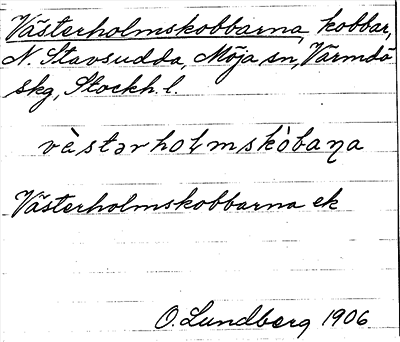 Västerholmskobbarna, kobbar,
N. Stavsudda, Möja sn, Värmdö
skg, Stockh. l.
vèstərholmskòbaṇa
Västerholmskobbarna ek
O. Lundberg 1906